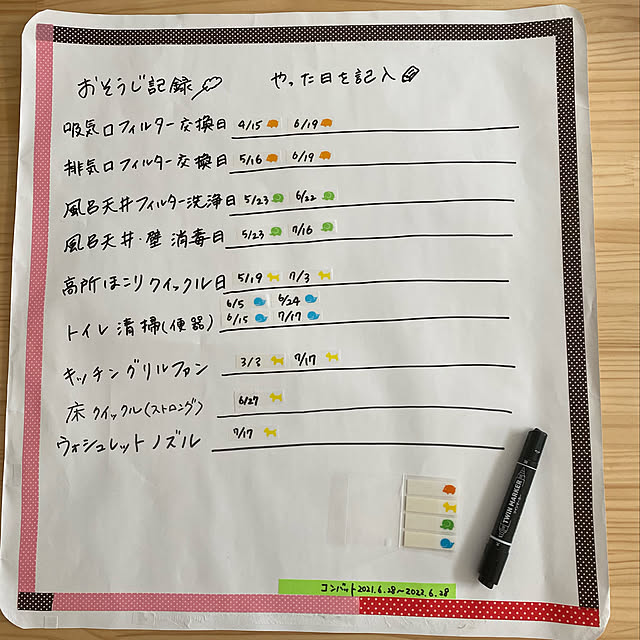 おそうじ記録 やった日を記入
吸気口フィルター交換日 4/15 6/19
排気口フィルター交換日 5/16 6/19
風呂天井フィルター洗浄日 5/23 6/22
風呂天井・壁 消毒日 5/23 7/16
高所ほこりクイックル日 5/19 7/3
6/5 6/24
トイレ清掃(便器) 6/15 7/17
キッチングリルファン 3/3 7/17
床クイックル(ストロング) 6/27
ウォシュレットノズル 7/17
TWIN MARKER
コンバット2021.6.28〜2022.6.28